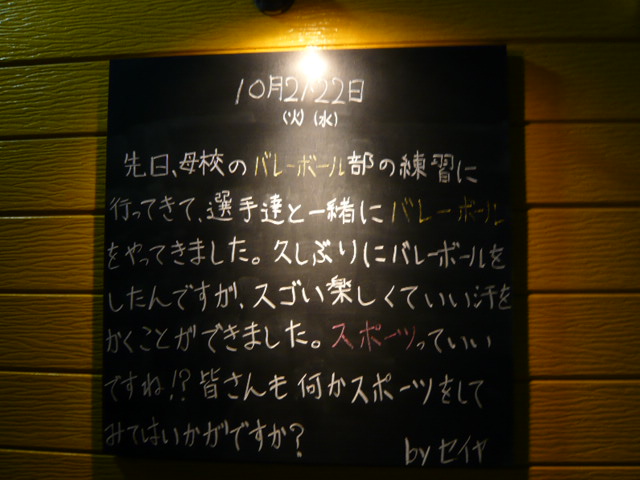 10月21,22日
(火)(水)
先日、母校のバレーボール部の練習に
行ってきて、選手達と一緒にバレーボール
をやってきました。久しぶりにバレーボールを
したんですが、スゴい楽しくていい汗を
かくことができました。スポーツっていい
ですね!?皆さんも何かスポーツをして
みてはいかがですか?
by セイヤ